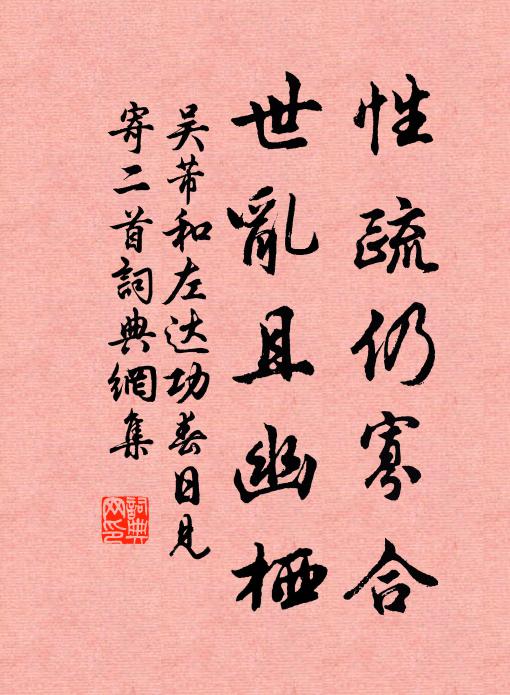 性疏仍寡合
世亂且幽栖
吴芾和左达功春日见
寄二首詞典網集
詞典
网印